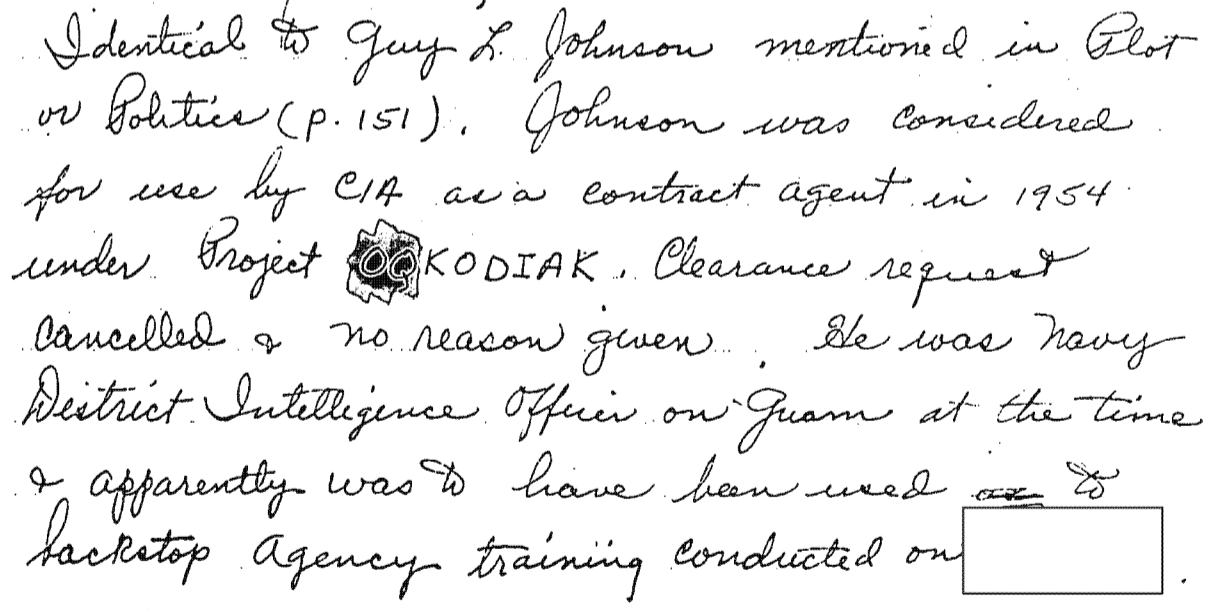 Identical to Guy L. Johnson mentioned in Plot
or Politics (p. 151). Johnson was considered
for use by CIA as a contract agent in 1954
under Project OQKODIAK. Clearance request
cancelled & no reason given. He was Navy
District Intelligence Officer on Guam at the time
& apparently was to have been used as to
backstop Agency training conducted on .